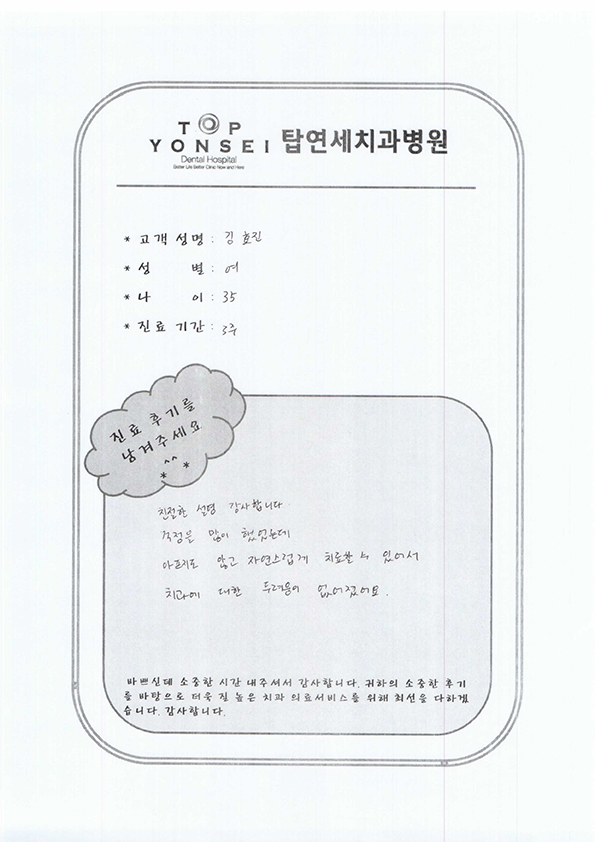 TOP
YONSEI 탑연세치과병원
Dental Hospital
Better Life Better Clinic Now and Here
* 고객성명 : 김효진
* 성 별 : 여
* 나 이 : 35
* 진료 기간 : 3주
진료 후기를
남겨주세요
^^
* *
친절한 설명 감사합니다.
걱정을 많이 했었는데
아프지도 않고 자연스럽게 치료할 수 있어서
치과에 대한 두려움이 없어졌어요.
바쁘신데 소중한 시간 내주셔서 감사합니다. 귀하의 소중한 후기
를 바탕으로 더욱 질 높은 치과 의료서비스를 위해 최선을 다하겠
습니다. 감사합니다.